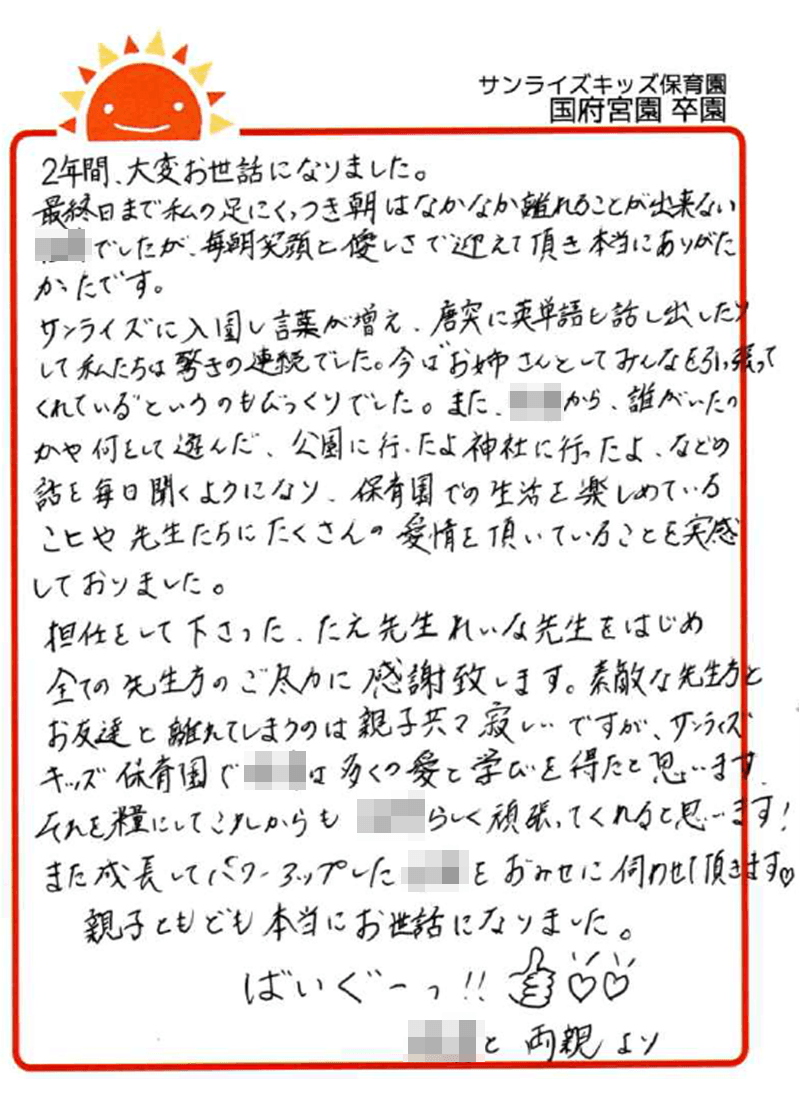 サンライズキッズ保育園
国府宮園 卒園
2年間、大変お世話になりました。
最終日まで私の足にくっつき朝はなかなか離れることが出来ない
でしたが、毎朝笑顔と優しさで迎えて頂き本当にありがた
かったです。
サンライズに入園し言葉が増え、唐突に英単語も話し出したり
して私たちは驚きの連続でした。今ば"お姉さんとしてみんなを引っ張って
くれている"というのもびっくりでした。また、から、誰がいたの
かや何をして遊んだ、公園に行ったよ神社に行ったよ、などの
話を毎日聞くようになり、保育園での生活を楽しめている
ことや先生たちにたくさんの愛情を頂いていることを実感
しておりました。
担任をして下さった、たえ先生れいな先生をはじめ
全ての先生方のご尽力に感謝致します。素敵な先生方と
お友達と離れてしまうのは親子共々寂しいですが、サンライズ
キッズ保育園では多くの愛と学びを得たと思います。
それを糧にしてこれからもらしく頑張ってくれると思います!
また成長してパワーアップしたをおみせに伺わせて頂きます♡
親子ともども本当にお世話になりました。
ばいぐーっ!!
と両親より